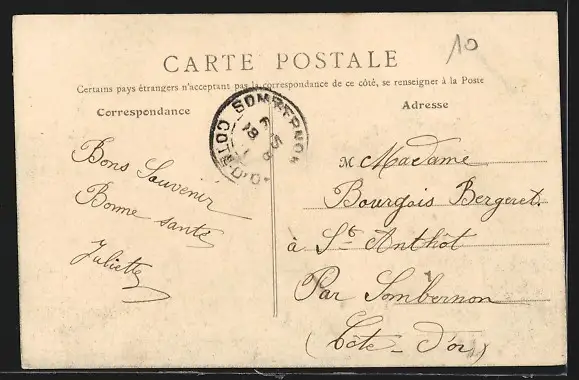 CARTE POSTALE
Certains pays étrangers n'acceptant pas la correspondance de ce côté, se renseigner à la Poste
Correspondance
Adresse
10
SOMBERNON
CÔTE-D'OR
Bons Souvenir
Bonne santé
Juliette
M Madame
Bourgois Bergeret.
à St Anthôt
Par Sombernon
(Côte-d'or)